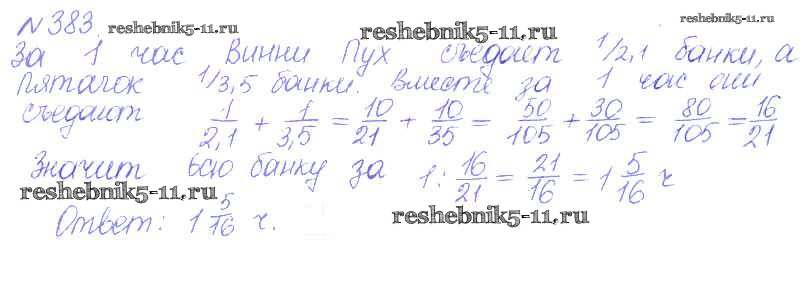 №383 reshebnik5-11.ru reshebnik5-11.ru reshebnik5-11.ru
За 1 час Винни Пух съедает 1/2,1 банки, а
Пятачок 1/3,5 банки. Вместе за 1 час они
съедают 1/2,1 + 1/3,5 = 10/21 + 10/35 = 50/105 + 30/105 = 80/105 = 16/21
Значит всю банку за 1 : 16/21 = 21/16 = 1 5/16 ч
reshebnik5-11.ru
Ответ: 1 5/16 ч. reshebnik5-11.ru